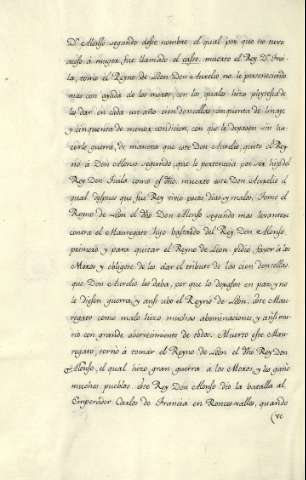 Dn Alonso segundo deste nombre el qual por que no tuvo
acesso á muger, fue llamado el casto, muerto el Rey Dn Froi-
la, tomo el Reyno de Leon Don Aurelio no le perteneciendo
mas con ayuda de los moros, con los quales hizo pleytesia de
les dar en cada un año cien doncellas cinquenta de linage
y cinquenta de menor condicion, con que le dejassen sin ha-
cerle guerra, de manera que este Don Aurelio, quito el Rey-
no á Don Alonso segundo que le pertenecia por ser hijo del
Rey Don Fruela como dho. muerto este Don Aurelio el
qual despues que fue Rey vivio pocos dias y malos; tomo el
Reyno de Leon el dho Don Alonso segundo mas levantose
contra el Mauregato hijo bastardo del Rey Don Alonso
primero, y para quitar el Reyno de Leon pidió favor á los
Moros y obligose de les dar el tributo de las cien doncellas
que Don Aurelio les daba, por que lo dejassen en paz, y no
le diesen guerra, y ansi ubo el Reyno de Leon. este Mau-
regato como malo hizo muchas abominaciones y ansi mu-
rio con grande aborrecimiento de todos. Muerto este Mau-
regato, torno á tomar el Reyno de Leon el dho Rey Don
Alonso, el qual hizo gran guerra á los Moros, y les gano
muchos pueblos. este Rey Don Alonso dio la batalla al
Emperador Carlos de Francia en Roncesvalles, quando